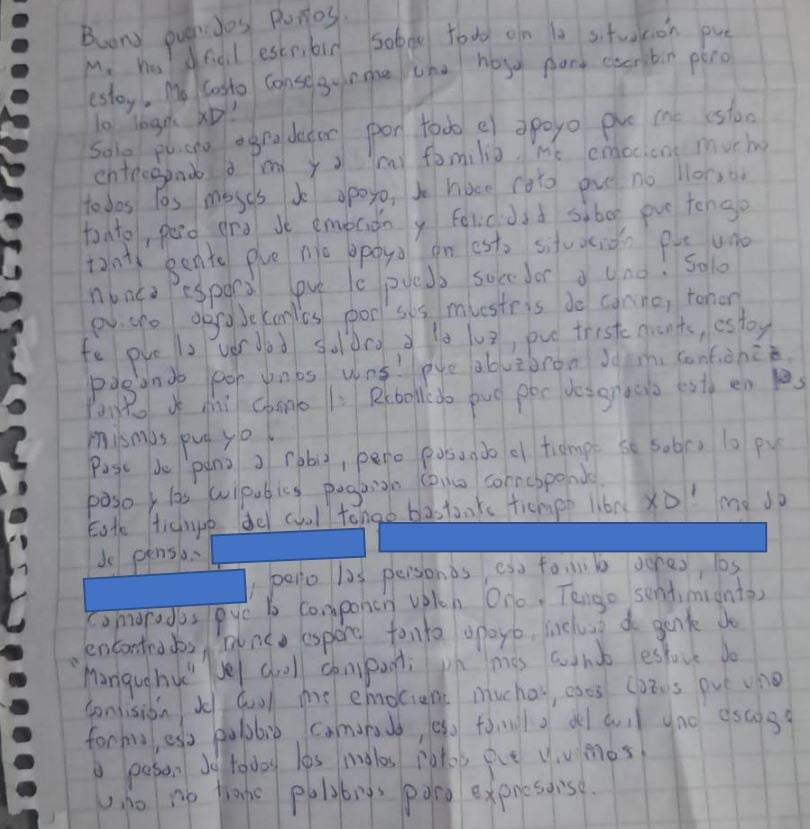 Bueno queridos Punтos.
Me has dificil escribir sobre todo en la situación que
estoy. Me costo conseguirme una hoja para escribir pero
lo logre XD!
Solo quiero agradecer por todo el apoyo que me estan
entregando a mi y a mi familia. Me emocione mucho
todos los msges de apoyo, de hace rato que no lloraba
tanto, pero era de emoción y felicidad saber que tengo
tanta gente que me apoya en esta situación que uno
nunca espera que le pueda suceder a uno. Solo
quiero agradecerles por sus muestras de cariño, tener
fe que la verdad saldra a la luz, que tristemente, estoy
pagando por unos wns! que abuzaron de mi confianza
tanto de mi como la Rebolledo que por desgracia esta en las
mismas que yo.
Pase de pena a rabia, pero pasando el tiempo se sabra lo que
paso y los culpables pagaran como corresponde.
Este tiempo del cual tengo bastante tiempo libre XD! me da
de pensar
, pero las personas, esa familia aerea, los
camaradas que lo componen valen Oro. Tengo sentimientos
encontrados, nunca espere tanto apoyo, incluso de gente de
"Manquehue" del cual comparti un mes cuando estuve de
comisión, del cual me emocione mucho, esos lazos que uno
forma, esa palabra camarada, esa familia del cual uno escoge
a pesar de todos los malos ratos que vivimos.
Uno no tiene palabras para expresarse.